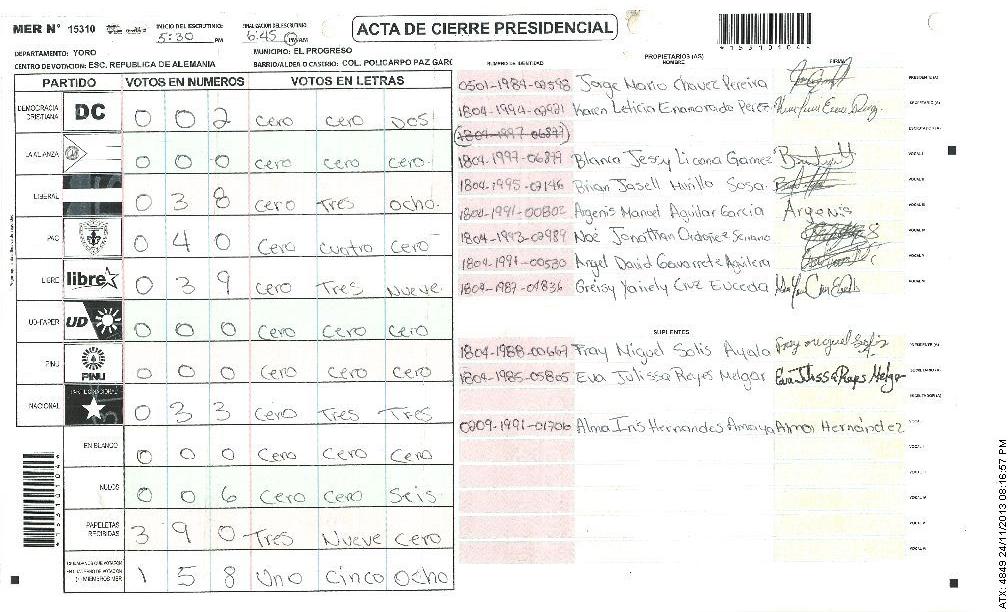 MER N° 15310
INICIO DEL ESCRUTINIO:
5:30 PM
FINALIZACION DEL ESCRUTINIO:
6:45 PM AM
ACTA DE CIERRE PRESIDENCIAL
DEPARTAMENTO: YORO
MUNICIPIO: EL PROGRESO
CENTRO DE VOTACION: ESC. REPUBLICA DE ALEMANIA
BARRIO/ALDEA O CASERIO: COL. POLICARPO PAZ GARC
PARTIDO VOTOS EN NUMEROS VOTOS EN LETRAS
DEMOCRACIA CRISTIANA DC 0 0 2 cero cero Dos
LA ALIANZA 0 0 0 cero cero cero
LIBERAL 0 3 8 cero Tres ocho
PAC 0 4 0 Cero cuatro cero
LIBRE libre 0 3 9 cero Tres Nueve
UD-FAPER UD 0 0 0 Cero Cero Cero
PINU PINU 0 0 0 Cero Cero Cero
NACIONAL 0 3 3 Cero Tres Tres
EN BLANCO 0 0 0 Cero Cero Cero
NULOS 0 0 6 Cero Cero Seis
PAPELETAS RECIBIDAS 3 9 0 Tres Nueve Cero
1 5 8 Uno Cinco Ocho
NUMERO DE IDENTIDAD
PROPIETARIOS (AS)
NOMBRE
FIRMA
0501-1984-02598 Jorge Mario Chavez Pereira
1804-1994-02921 Karen Leticia Enamorado Perez
(1804-1997-06879)
1804-1997-06879 Blanca Jessy Licona Gamez
1804-1995-02146 Brian Jasell Murillo Sosa
1804-1991-00802 Argenis Manuel Aguilar Garcia Argenis
1804-1993-02989 Noé Jonathan Ordoñez Serrano
1804-1991-00530 Angel David Gavarrete Aguilera
1804-1987-04836 Greisy Yairely Cruz Euceda
SUPLENTES
1804-1988-00667 Fray Miguel Solis Ayala Fray miguel Solis A
1804-1985-05805 Eva Julissa Reyes Melgar Eva Julissa Reyes Melgar
0209-1991-01706 Alma Iris Hernandes Amaya Alma Hernández
ATX: 4849 24/11/2013 08:16:57 PM